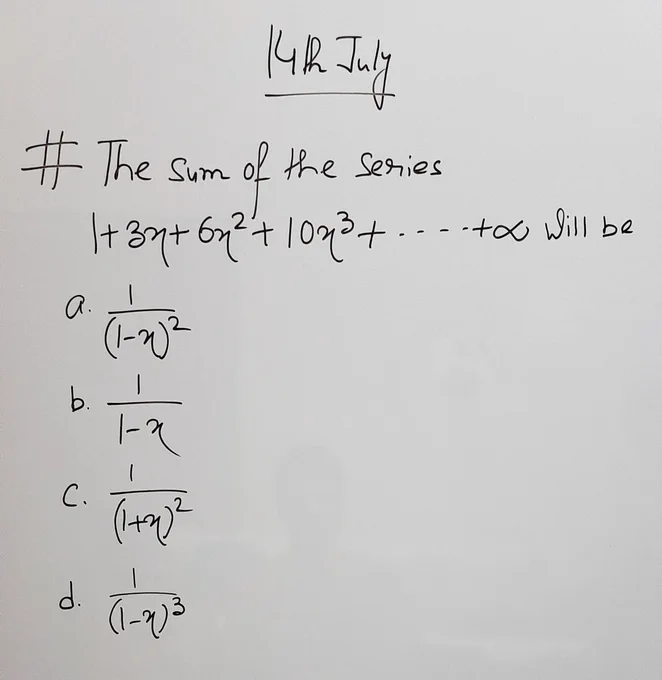 14th July
# The sum of the series
1+3x+6x²+10x³+-----+∞ will be
a. 1/(1-x)²
b. 1/1-x
c. 1/(1+x)²
d. 1/(1-x)³